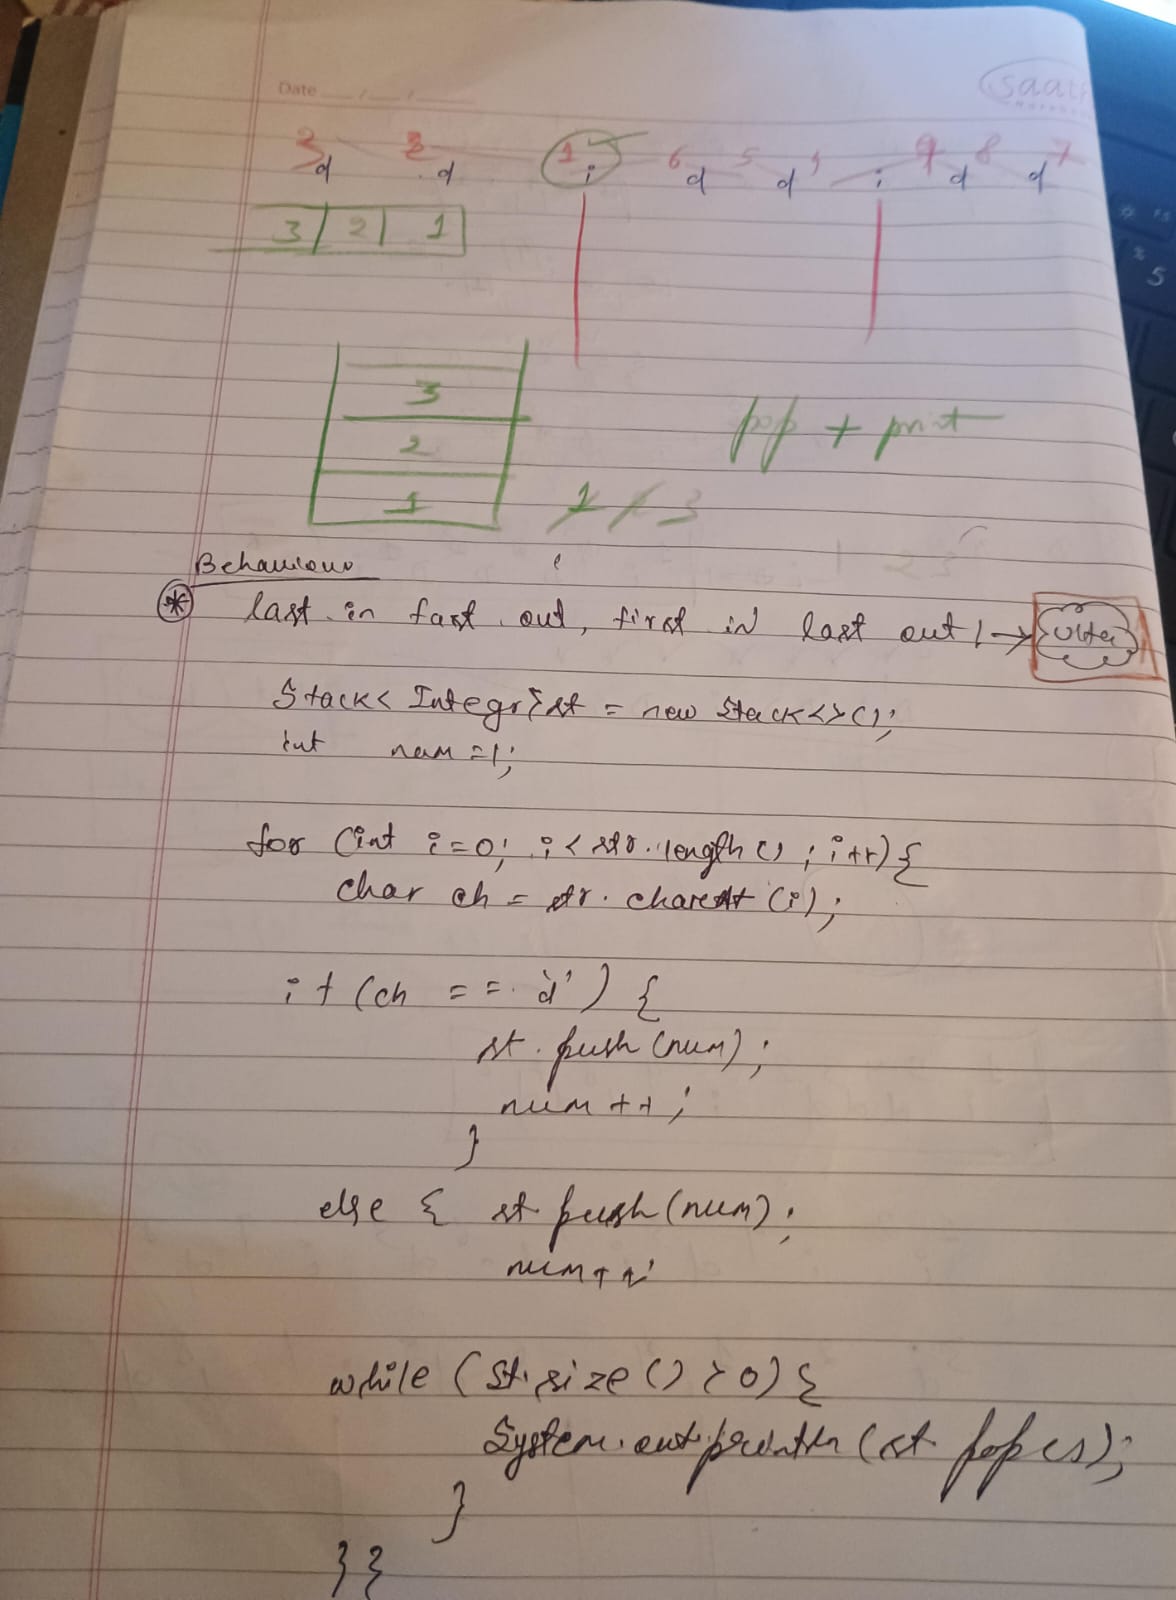 Date
saat
3 d 2 d 1 i 6 d 5 d i 9 d 8 d 7
3 2 1
3
2
1
pop + print
1 3
1 2 3
Behaviour
* last in fast out, first in last out! →
Stack< Integr> st = new Stack<>();
int num =1;
for (int i=0; i< str.length () ; i++) {
char ch = str. chareAt (i);
if (ch == 'd') {
st. push (num);
num ++;
}
else { st push (num);
num++;
while (st.size () > 0) {
System.out.println (st pop());
}
} }